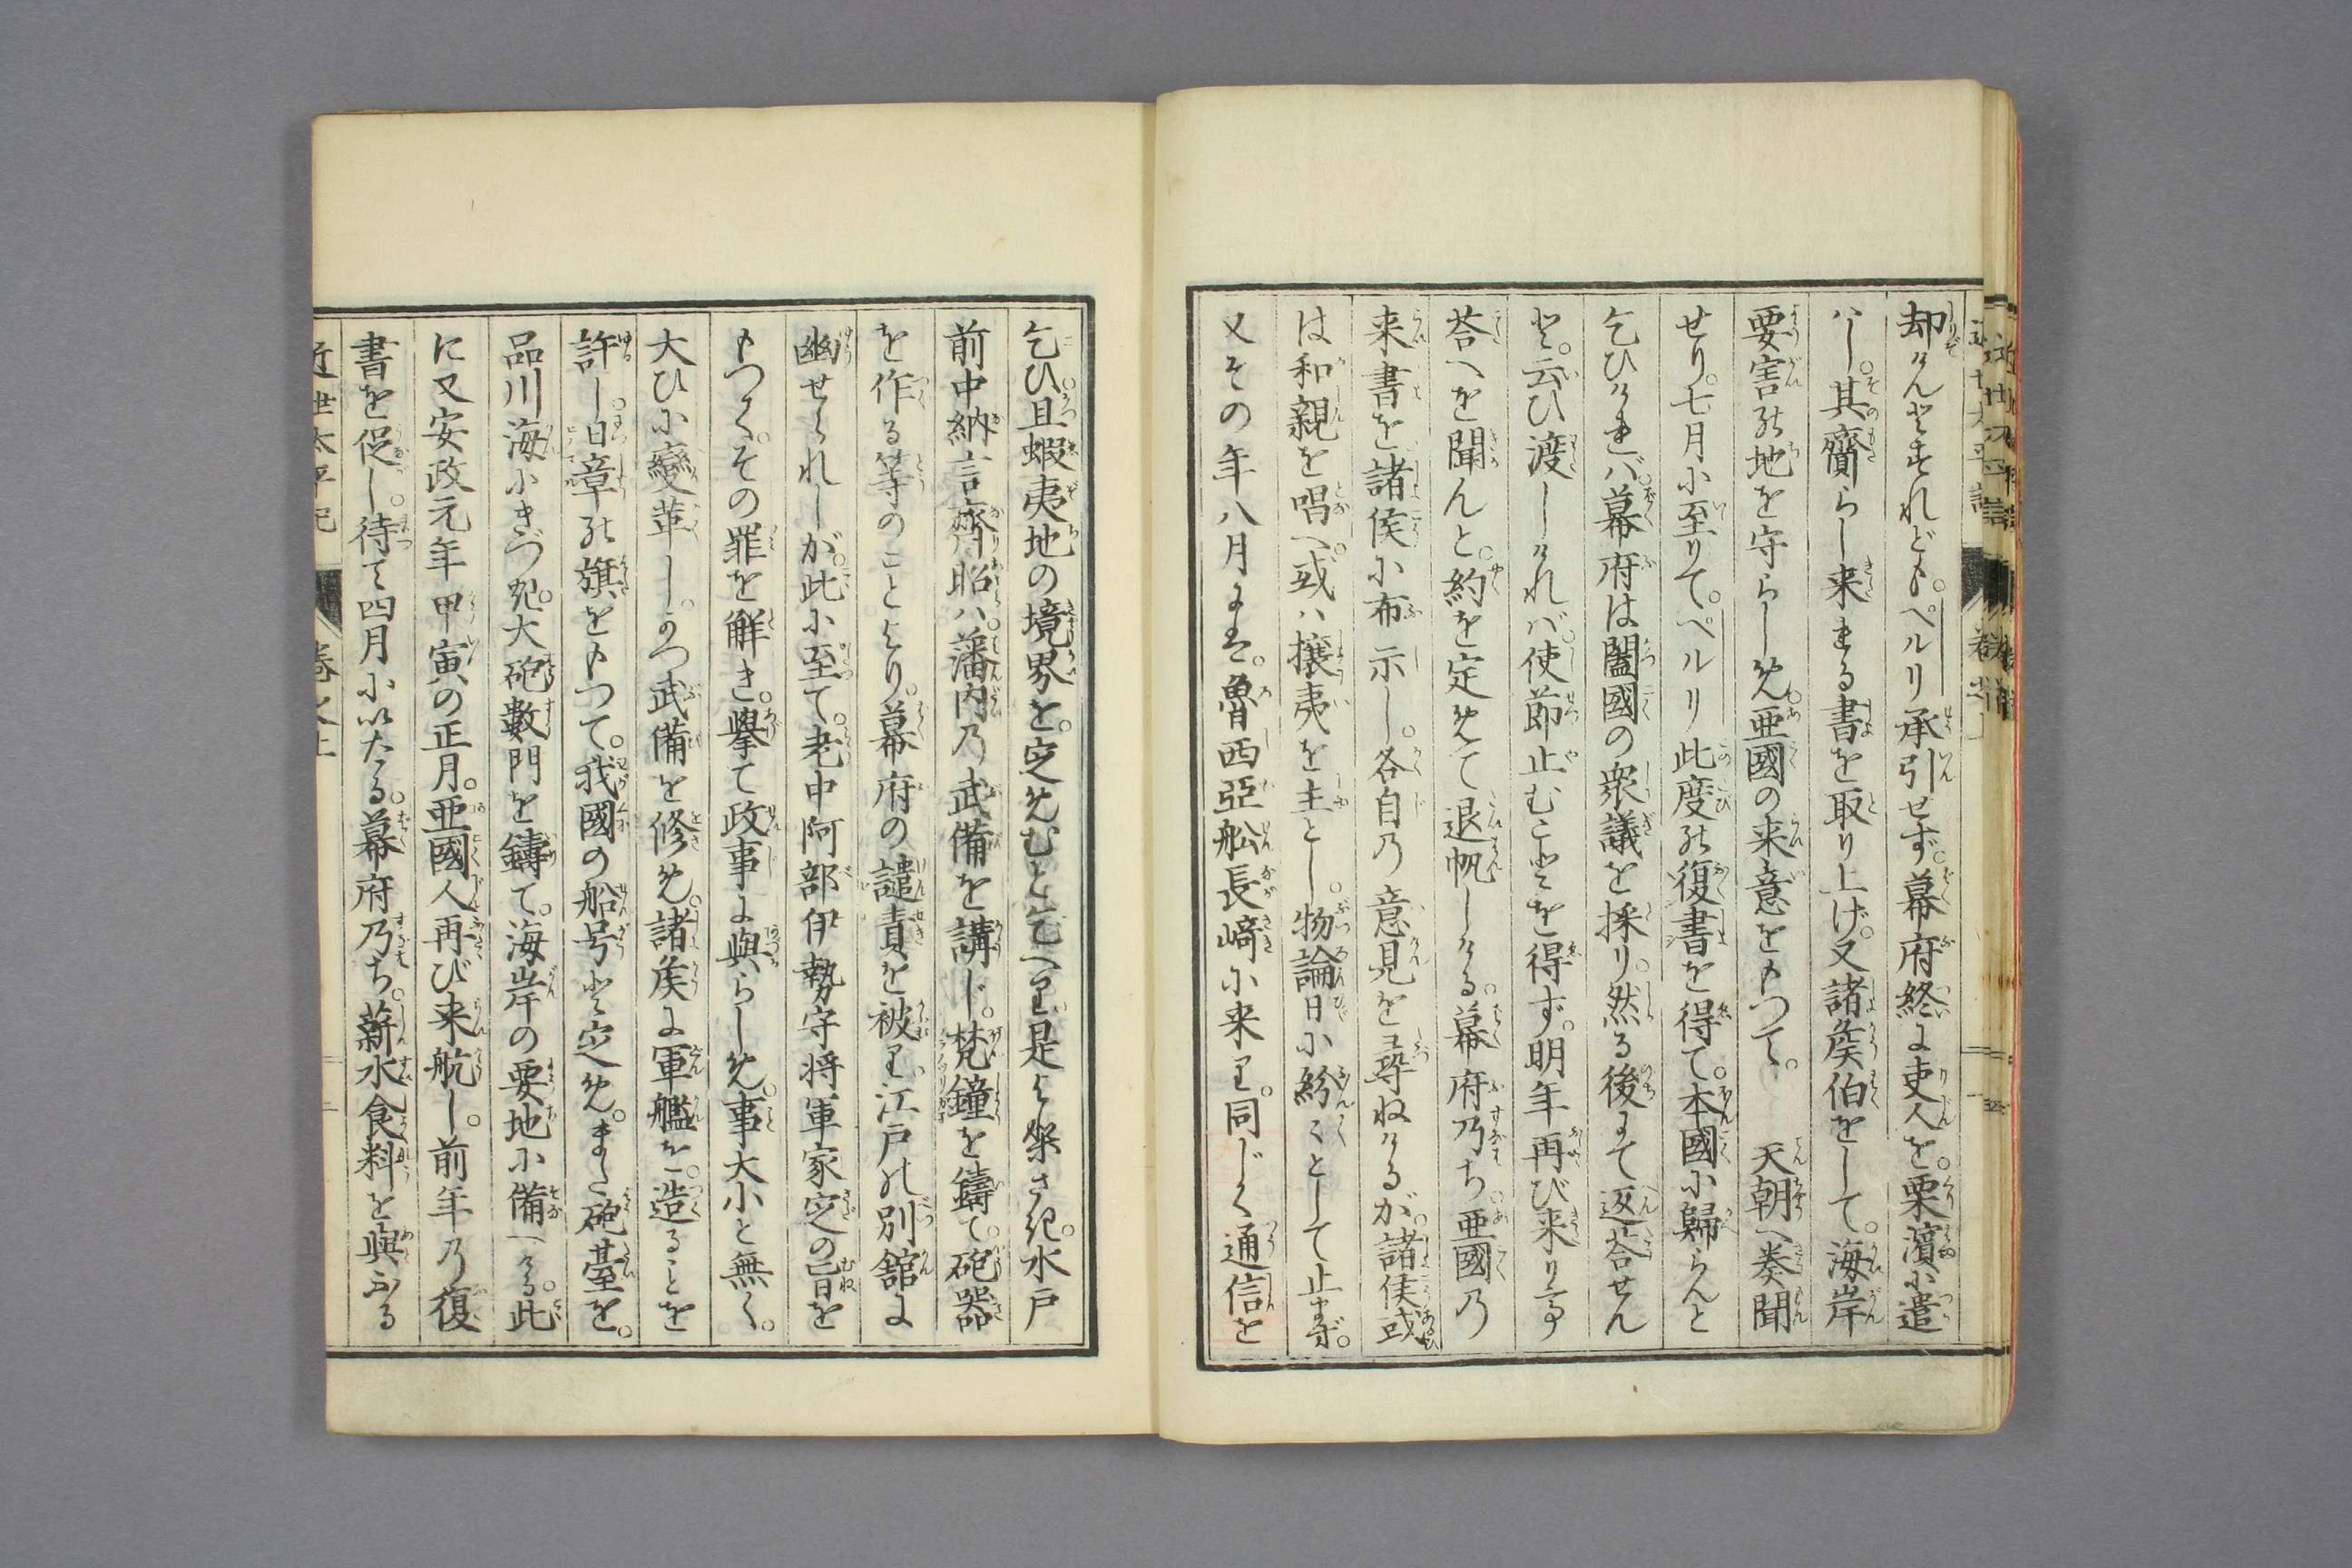 却けんとすれども。ペルリ承引せず。幕府終に吏人を。栗濱に遣
ハし。其齎らし来れる書を取り上げ。又諸矦伯をして。海岸
要害の地を守らしめ。亜國の来意をもつて。天朝へ奏聞
せり。七月に至りて。ペルリ此度の復書を得て。本國に歸らんと
乞ひけれバ。幕府は闔國の衆議を採り。然る後にて返荅せん
と。云ひ渡しけれバ。使節止むことを得ず。明年再び来り
荅へを聞んと。約を定めて退帆しける。幕府乃ち。亜國の
来書を諸侯に布示し。各自の意見を尋ねけるが。諸侯或
は和親を唱へ。或ハ攘夷を主とし。物論日に紛々として止まず。
又その年八月にも。魯西亞舩長﨑に来り。同じく通信を
乞ひ。且蝦夷地の境界を。定めむと乞へり是より架さき。水戸
前中納言齊昭ハ。藩内の武備を講じ。梵鐘を鑄て。砲器
を作る等のことより。幕府の譴責を被り江戸の別舘に
幽せられしが。此に至て。老中阿部伊勢守将軍家定の旨を
もつて。その罪を觧き。擧て政事に與らしめ。事大小と無く。
大ひに變革し。かつ武備を修め。諸矦に軍艦を。造ることを
許し。日章の旗をもつて。我國の船号と定め。また砲臺を。
品川海にきづき。大砲數門を鑄て。海岸の要地に備へける。此
に又安政元年甲寅の正月。亜國人再び来航し。前年の復
書を促し。待て四月にいたる。幕府乃ち。薪水食料を與ふる
近世太平記 巻之上